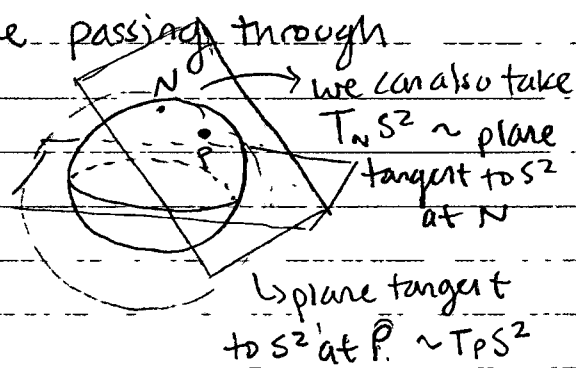 e passing through
N
we can also take
T_N S² ~ plane
P
tangent to S²
at N
↳ plane tangent
to S² at P. ~ T_P S²